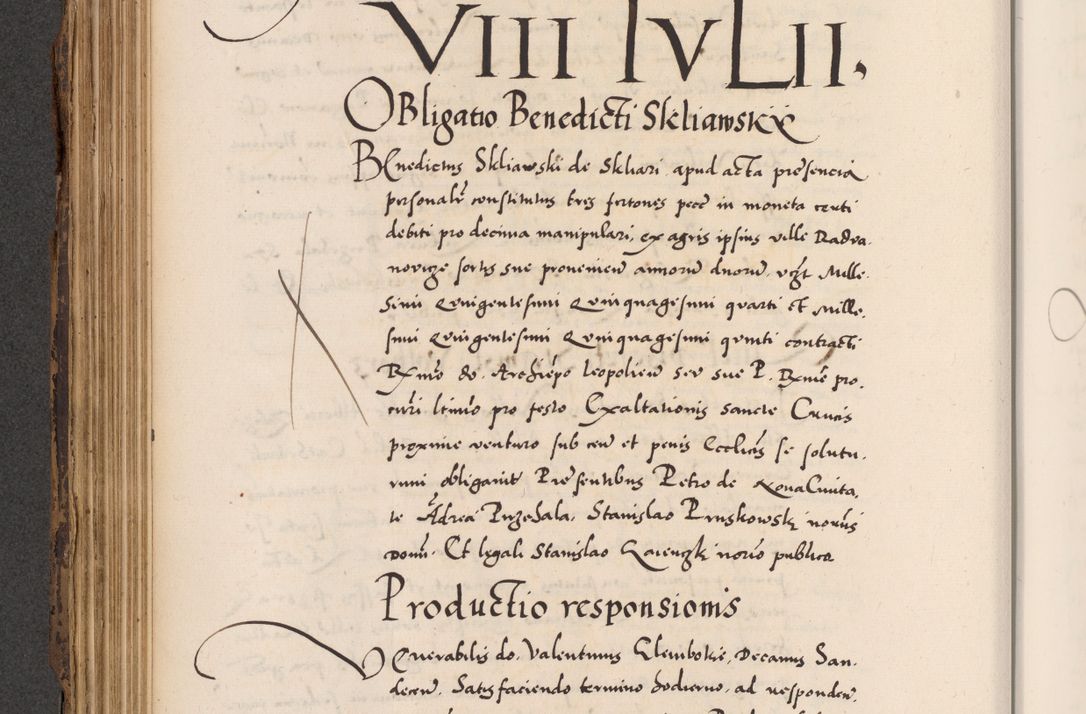 VIII IVLII.
OBligatio Benedicti Skliawskÿ
BEnedictus Skliawski de Skliari apud acta presencia
personalr constitutus tres fertones pecc in moneta centi
debiti pro decima manipulari, ex agris ipsius ville Radva-
novicze sortis sue provenien annorum duorum, vgt Mille-
simi Quingentesimi Quinquagesimi quarti et Mille-
simi Quingentesimi Quinquagesimi quinti contracti
Rxmo do. Archiepo leopolien seu sue P. Rxme pro-
curri ltimo pro festo Exaltationis sancte Crucis
proxime venturo sub cen et penis Ecclicis se solutu-
rum obligavit Presentibus Petro de Nova Civita-
te Adrea Przechala, Stanislao Pruskowski
domi. Et legali Stanislao notrio publico
Productio responsionis
VEnerabilis do. Valentinus Glembokie, Decanus San-
decen. Satisfaciendo termino hodierno, ad responden.